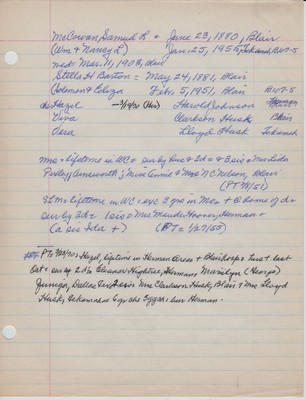 McCowan, Samuel L + June 23, 1880, Blair
(Wm & Nancy L) Jan. 25, 1955, Tekamah, B107-5
wed: Mar. 11, 1903, Blair
Stella H Barton = May 24, 1881, Blair
Holmom & Eliza Feb. 5, 1951, Blair B107-5
Hazel Harold Johnson Herman
Viva Clarkson Husk Blair
Vera Lloyd Husk Tekamah
Mrs - lifetime in WC + sur by hus & 3 d + 2 sis = Mrs Leda
Purdy, Ainsworth; Minnie & Mrs N C Nelson, Blair
(PT 2/8/51)
SLM = lifetime in WC exc 3 yrs in Mo + @ home of d +
sur by 3 d + 1 sis = Mrs Maude Hoover, Herman +
(a sis Ida +) (PT = 1/27/55)
PT 9/23/80: Hazel, lifetime in Herman area + Blair hosp + hus + last
Oct + sur by 2 d = Eleanor Hightree, Herman + Marilyn (George)
Zuniga, Dallas + 2 sis = Mrs Clarkson Husk, Blair & Mrs Lloyd
Husk, Tekamah + 6 gch + 5 ggch + bur Herman.